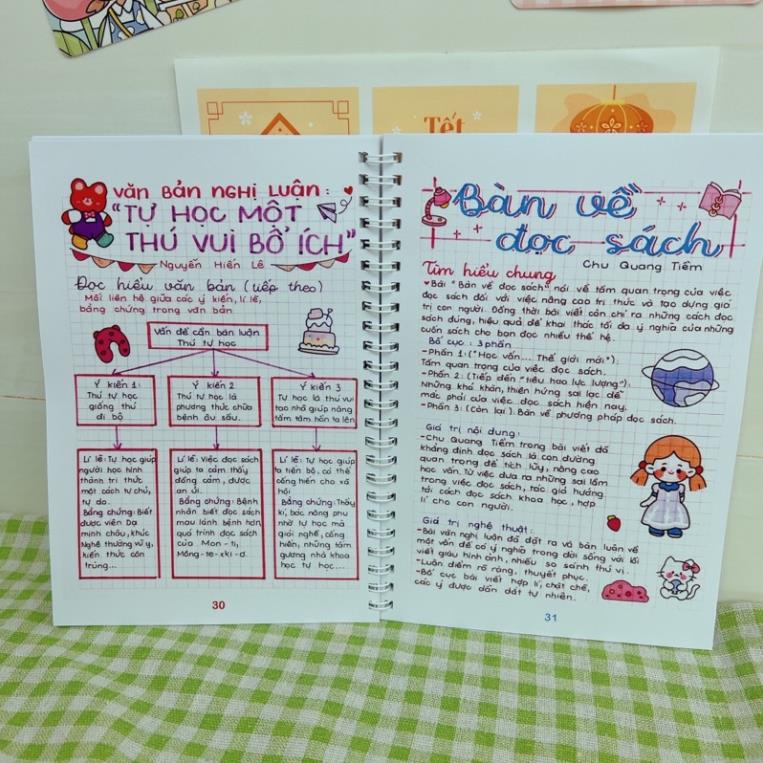 Tết
Văn bản nghị luận:
"Tự học một
thú vui bổ ích"
Nguyễn Hiến Lê
Đọc hiểu văn bản (tiếp theo)
Mối liên hệ giữa các ý kiến, lí lẽ,
bằng chứng trong văn bản
Vấn đề cần bàn luận
Thú tự học
Ý kiến 1:
Thú tự học
giống thú
đi bộ
Ý kiến 2
Thú tự học là
phương thức chữa
bệnh âu sầu.
Ý kiến 3
Tự học là thú vui
tao nhã giúp nâng
tầm tâm hồn ta lên
Lí lẽ: Tự học giúp
người học hình
thành tri thức
một cách tự chủ,
tự do.
Bằng chứng: Biết
được viên Dạ
minh châu, khúc
Nghê thường vũ y,
kiến thức côn
trùng...
Lí lẽ: Việc đọc sách
giúp ta cảm thấy
đồng cảm, được
an ủi.
Bằng chứng: Bệnh
nhân biết đọc sách
mau lành bệnh hơn,
quá trình đọc sách
của Mon-ti,
Mông-te-xki-ơ.
Lí lẽ: Tự học giúp
ta tiến bộ, có thể
cống hiến cho xã
hội
Bằng chứng: Thầy
kí, bác nông phu
nhờ tự học mà
giỏi nghề, cống
hiến, những tấm
gương nhà khoa
học tự học,...
30
Bàn về
đọc sách
Chu Quang Tiềm
Tìm hiểu chung
Bài "Bàn về đọc sách" nói về tầm quan trọng của việc
đọc sách đối với việc nâng cao tri thức và tạo dựng giá
trị con người. Đồng thời bài viết còn chỉ ra những cách đọc
sách đúng, hiệu quả để khai thác tối đa ý nghĩa của những
cuốn sách cho bạn nhiều thế hệ.
Bố cục: 3 phần
-Phần 1: ("Học vấn... Thế giới mới"):
Tầm quan trọng của việc đọc sách.
-Phần 2: (Tiếp đến "tiêu hao lực lượng"):
Những khó khăn, thiên hướng sai lạc dễ
mắc phải của việc đọc sách hiện nay.
-Phần 3: (Còn lại): Bàn về phương pháp đọc sách.
Giá trị nội dung:
-Chu Quang Tiềm trong bài viết đã
khẳng định đọc sách là con đường
quan trọng để tích lũy, nâng cao
học vấn. Từ việc đưa ra những sai lầm
trong việc đọc sách, tác giả hướng
tới cách đọc sách khoa học, hợp
lí cho con người.
Giá trị nghệ thuật:
-Bài văn nghị luận đã đặt ra và bàn luận về
một vấn đề có ý nghĩa trong đời sống với lối
viết giàu hình ảnh, nhiều so sánh thú vị.
-Luận điểm rõ ràng, thuyết phục.
-Bố cục bài viết hợp lí, chặt chẽ,
các ý được dẫn dắt tự nhiên.
31